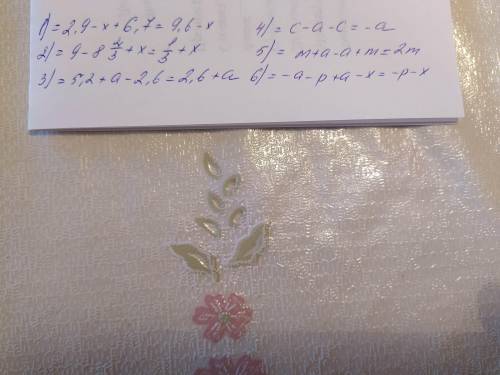 1) = 2,9 - x + 6,7 = 9,6 - x
2) = 9 - 8 + x = 1/3 + x
3) = 5,2 + a - 2,6 = 2,6 + a
4) = c - a - c = -a
5) = m + a - a + m = 2m
6) = -a - p + a - x = -p - x